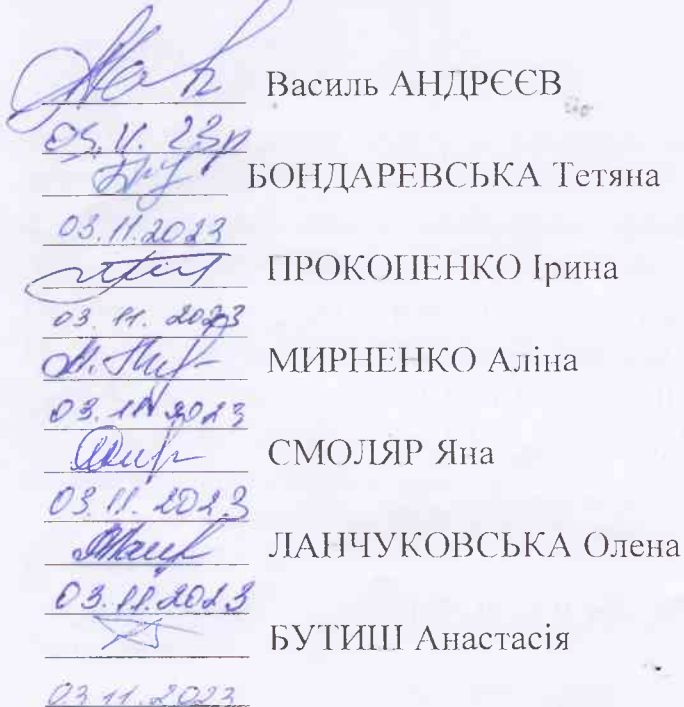 Василь АНДРЄЄВ
03.11.23р
БОНДАРЕВСЬКА Тетяна
03.11.2023
ПРОКОПЕНКО Ірина
03.11.2023
МИРНЕНКО Аліна
03.11.2023
СМОЛЯР Яна
03.11.2023
ЛАНЧУКОВСЬКА Олена
03.11.2023
БУТИШ Анастасія
03.11.2023